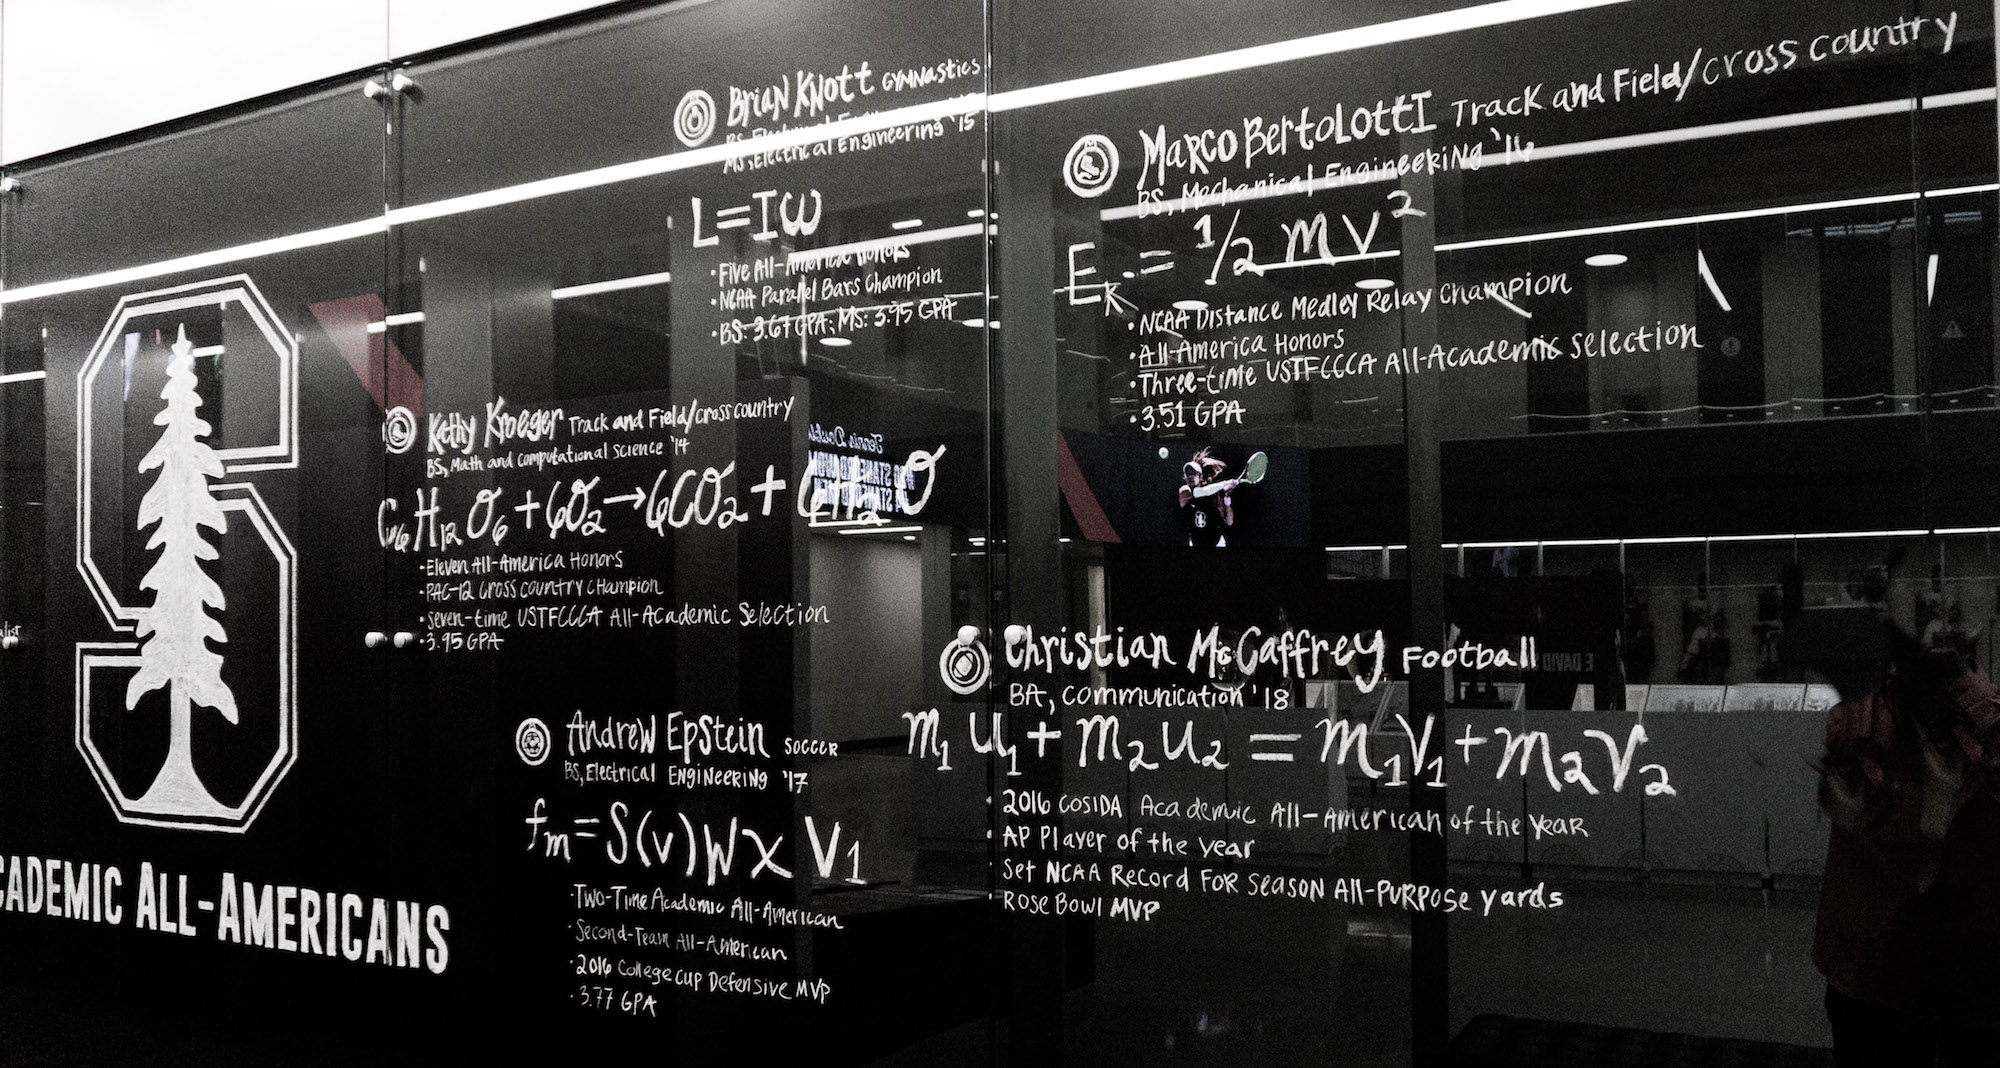 Brian Knott Gymnastics
BS, Electrical Engineering
MS, Electrical Engineering '15
L=Iω
• Five All-America Honors
• NCAA Parallel Bars Champion
• BS: 3.67 GPA; MS: 3.95 GPA
Marco Bertolotti Track and Field/cross country
BS, Mechanical Engineering '16
Eₖ = 1/2 mv²
• NCAA Distance Medley Relay Champion
• All-America Honors
• Three-time USTFCCCA All-Academic Selection
• 3.51 GPA
Kathy Kroeger Track and Field/cross country
BS, Math and computational science '14
C₆H₁₂O₆+6O₂→6CO₂+6H₂O
• Eleven All-America Honors
• PAC-12 cross country champion
• seven-time USTFCCCA All-Academic Selection
• 3.95 GPA
Christian McCaffrey Football
BA, communication '18
m₁u₁+m₂u₂=m₁v₁+m₂v₂
• 2016 COSIDA Academic All-American of the year
• AP Player of the year
• Set NCAA Record for season All-Purpose yards
• Rose Bowl MVP
Andrew Epstein soccer
BS, Electrical Engineering '17
fm=S(v)W×V₁
• Two-Time Academic All-American
• Second-Team All-American
• 2016 College Cup Defensive MVP
• 3.77 GPA
CADEMIC ALL-AMERICANS